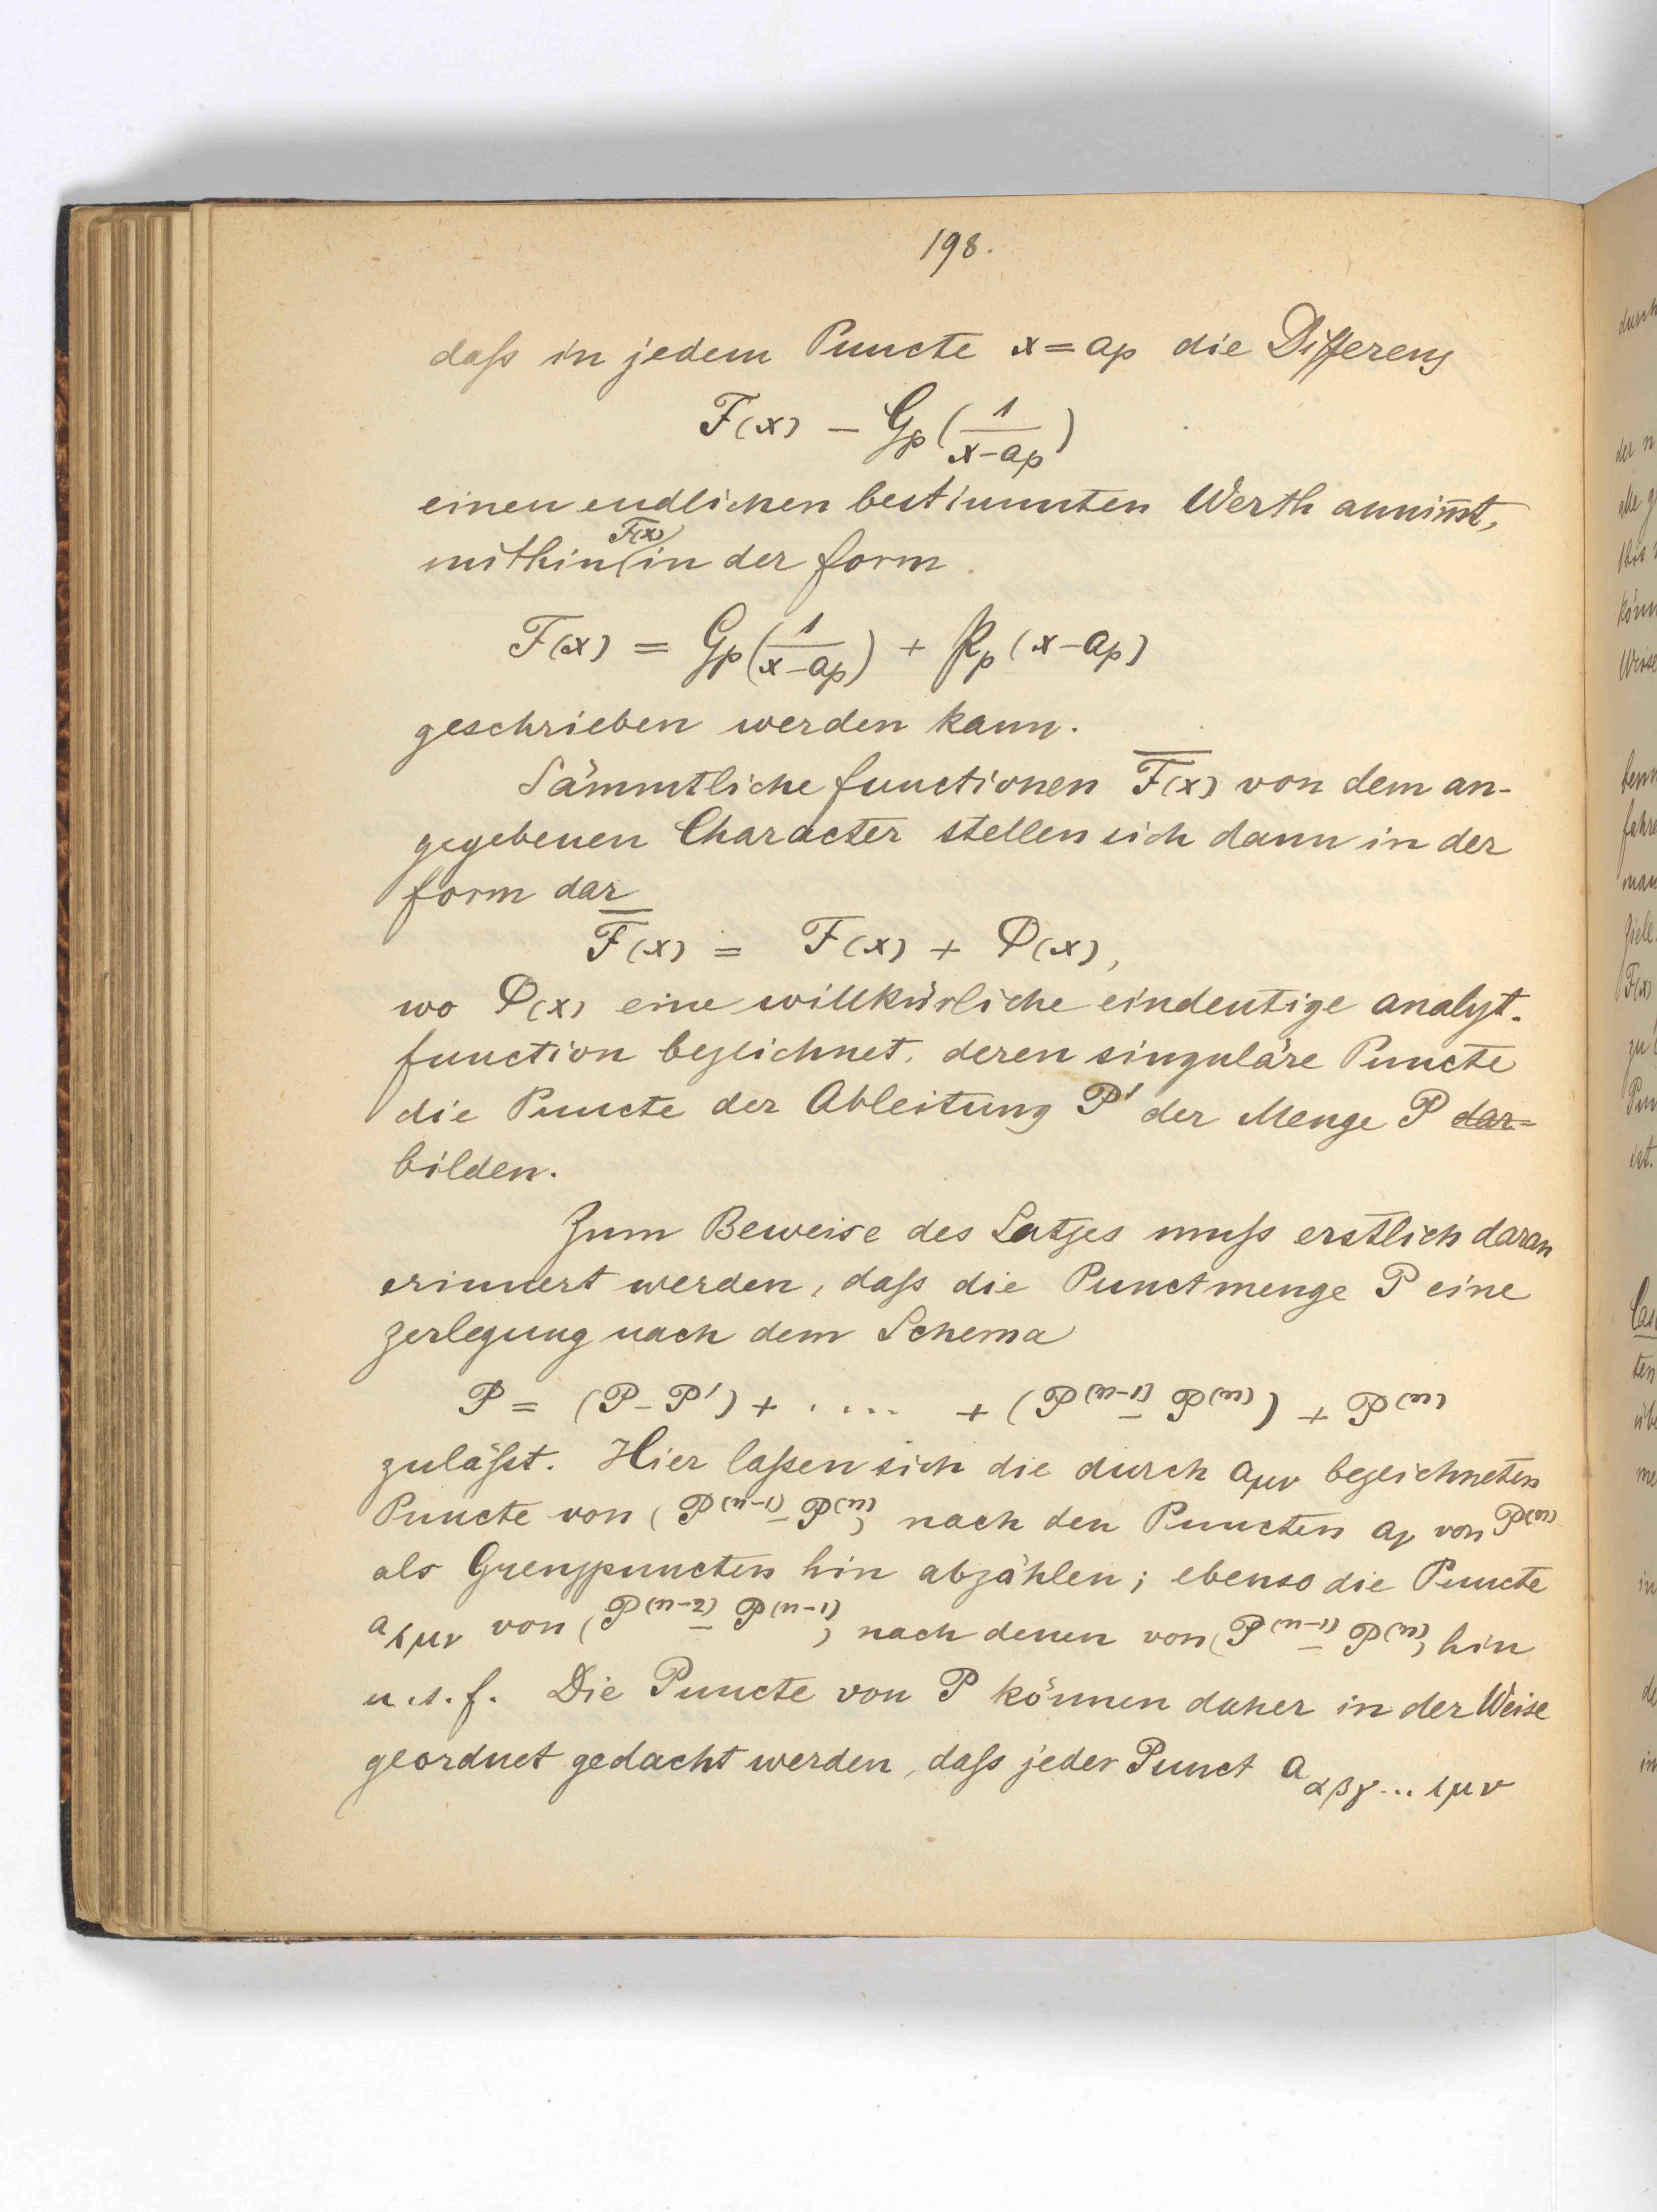 198.
daſs in jedem Puncte x = a_p die Differenz
F(x) − G_p(1/(x−a_p))
einen endlichen bestimmten Werth annim̄t,
mithin F(x) in der Form
F(x) = G_p(1/(x−a_p)) + 𝔓_p(x−a_p)
geschrieben werden kann.
Sämmtliche Functionen F̅(x) von dem an-
gegebenen Character stellen sich dann in der
Form dar
F̅(x) = F(x) + Φ(x),
wo Φ(x) eine willkürliche eindeutige analyt.
Function bezeichnet, deren singuläre Puncte
die Puncte der Ableitung P' der Menge P dar-
bilden.
Zum Beweise des Satzes muſs erstlich daran
erinnert werden, daſs die Punctmenge P eine
Zerlegung nach dem Schema
P = (P − P') + . . . . + (P^(n−1) − P^(n)) + P^(n)
zuläſst. Hier laſsen sich die durch a_μν bezeichneten
Puncte von (P^(n−1) − P^(n)) nach den Puncten a_ν von P^(n)
als Grenzpuncten hin abzählen; ebenso die Puncte
a_λμν von (P^(n−2) − P^(n−1)) nach denen von (P^(n−1) − P^(n)) hin
u. s. f. Die Puncte von P können daher in der Weise
geordnet gedacht werden, daſs jeder Punct a_αβγ...λμν